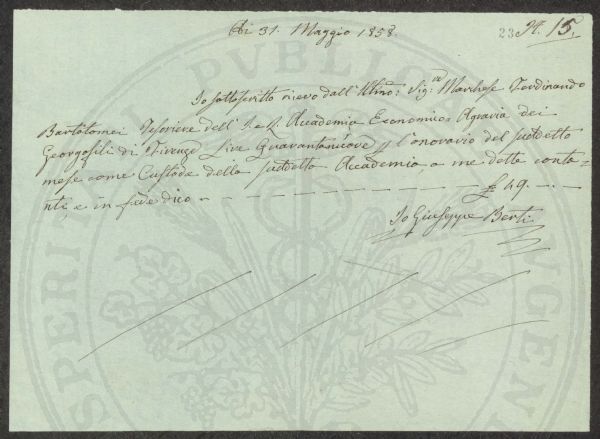 Adi 31. Maggio 1858.
23 N. 15.
Io sottoscritto ricevo dall'Illmo: Sig:re Marchese Ferdinando
Bartolomei Tesoriere dell'I. e R. Accademia Economico Agraria dei
Georgofili di Firenze Lire Quarantanuove p l'onorario del suddetto
mese come Custode della suddetta Accademia, a me dette conta=
nti, e in fede dico — £ 49. — . —
Io Giuseppe Berti
PROSPERITATI PUBLICAE AUGENDAE